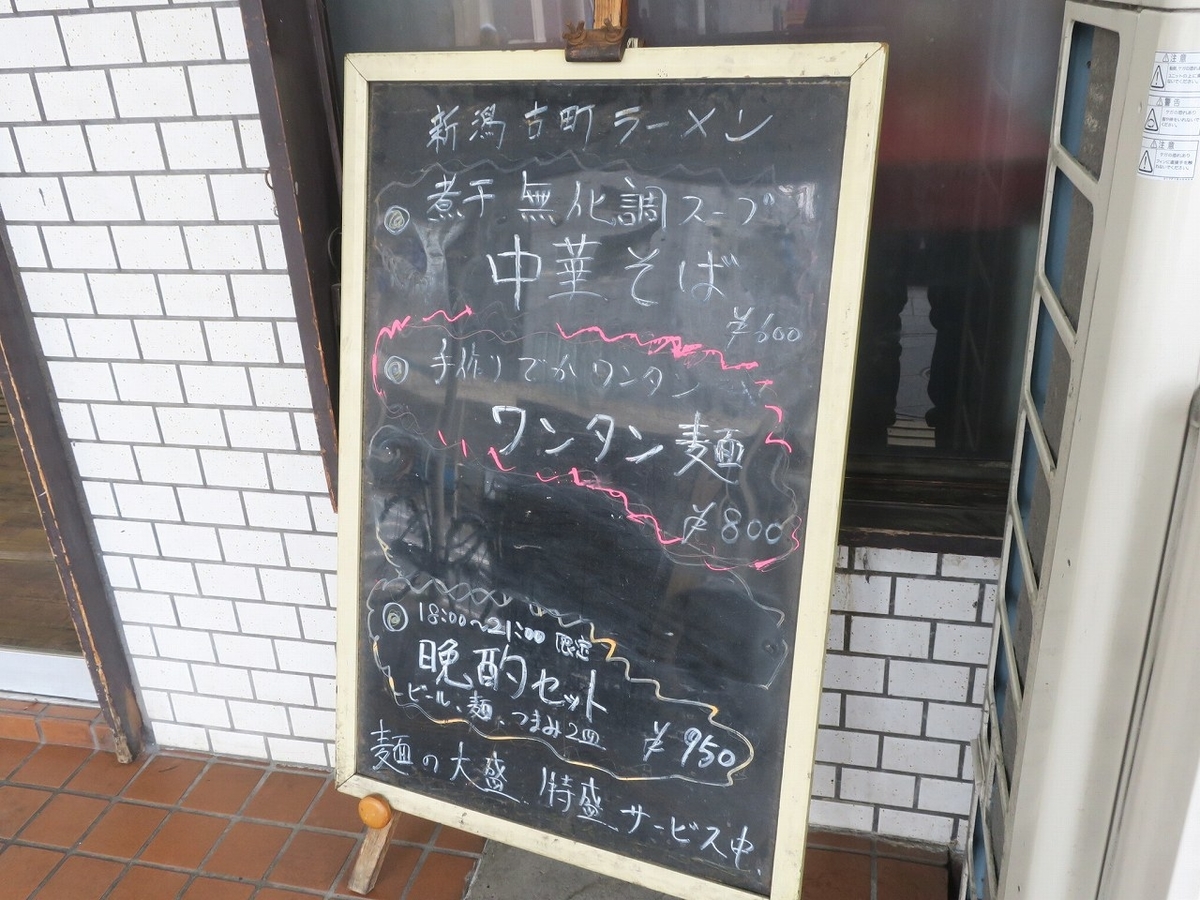 新潟古町ラーメン
◎ 煮干 無化調スープ
中華そば
¥600
◎ 手作りでかワンタン
ワンタン麺
¥800
◎ 18:00~21:00 限定
晩酌セット
ビール、麺、つまみ2皿
¥950
麺の大盛 特盛 サービス中
⚠注意
⚠警告
⚠注意